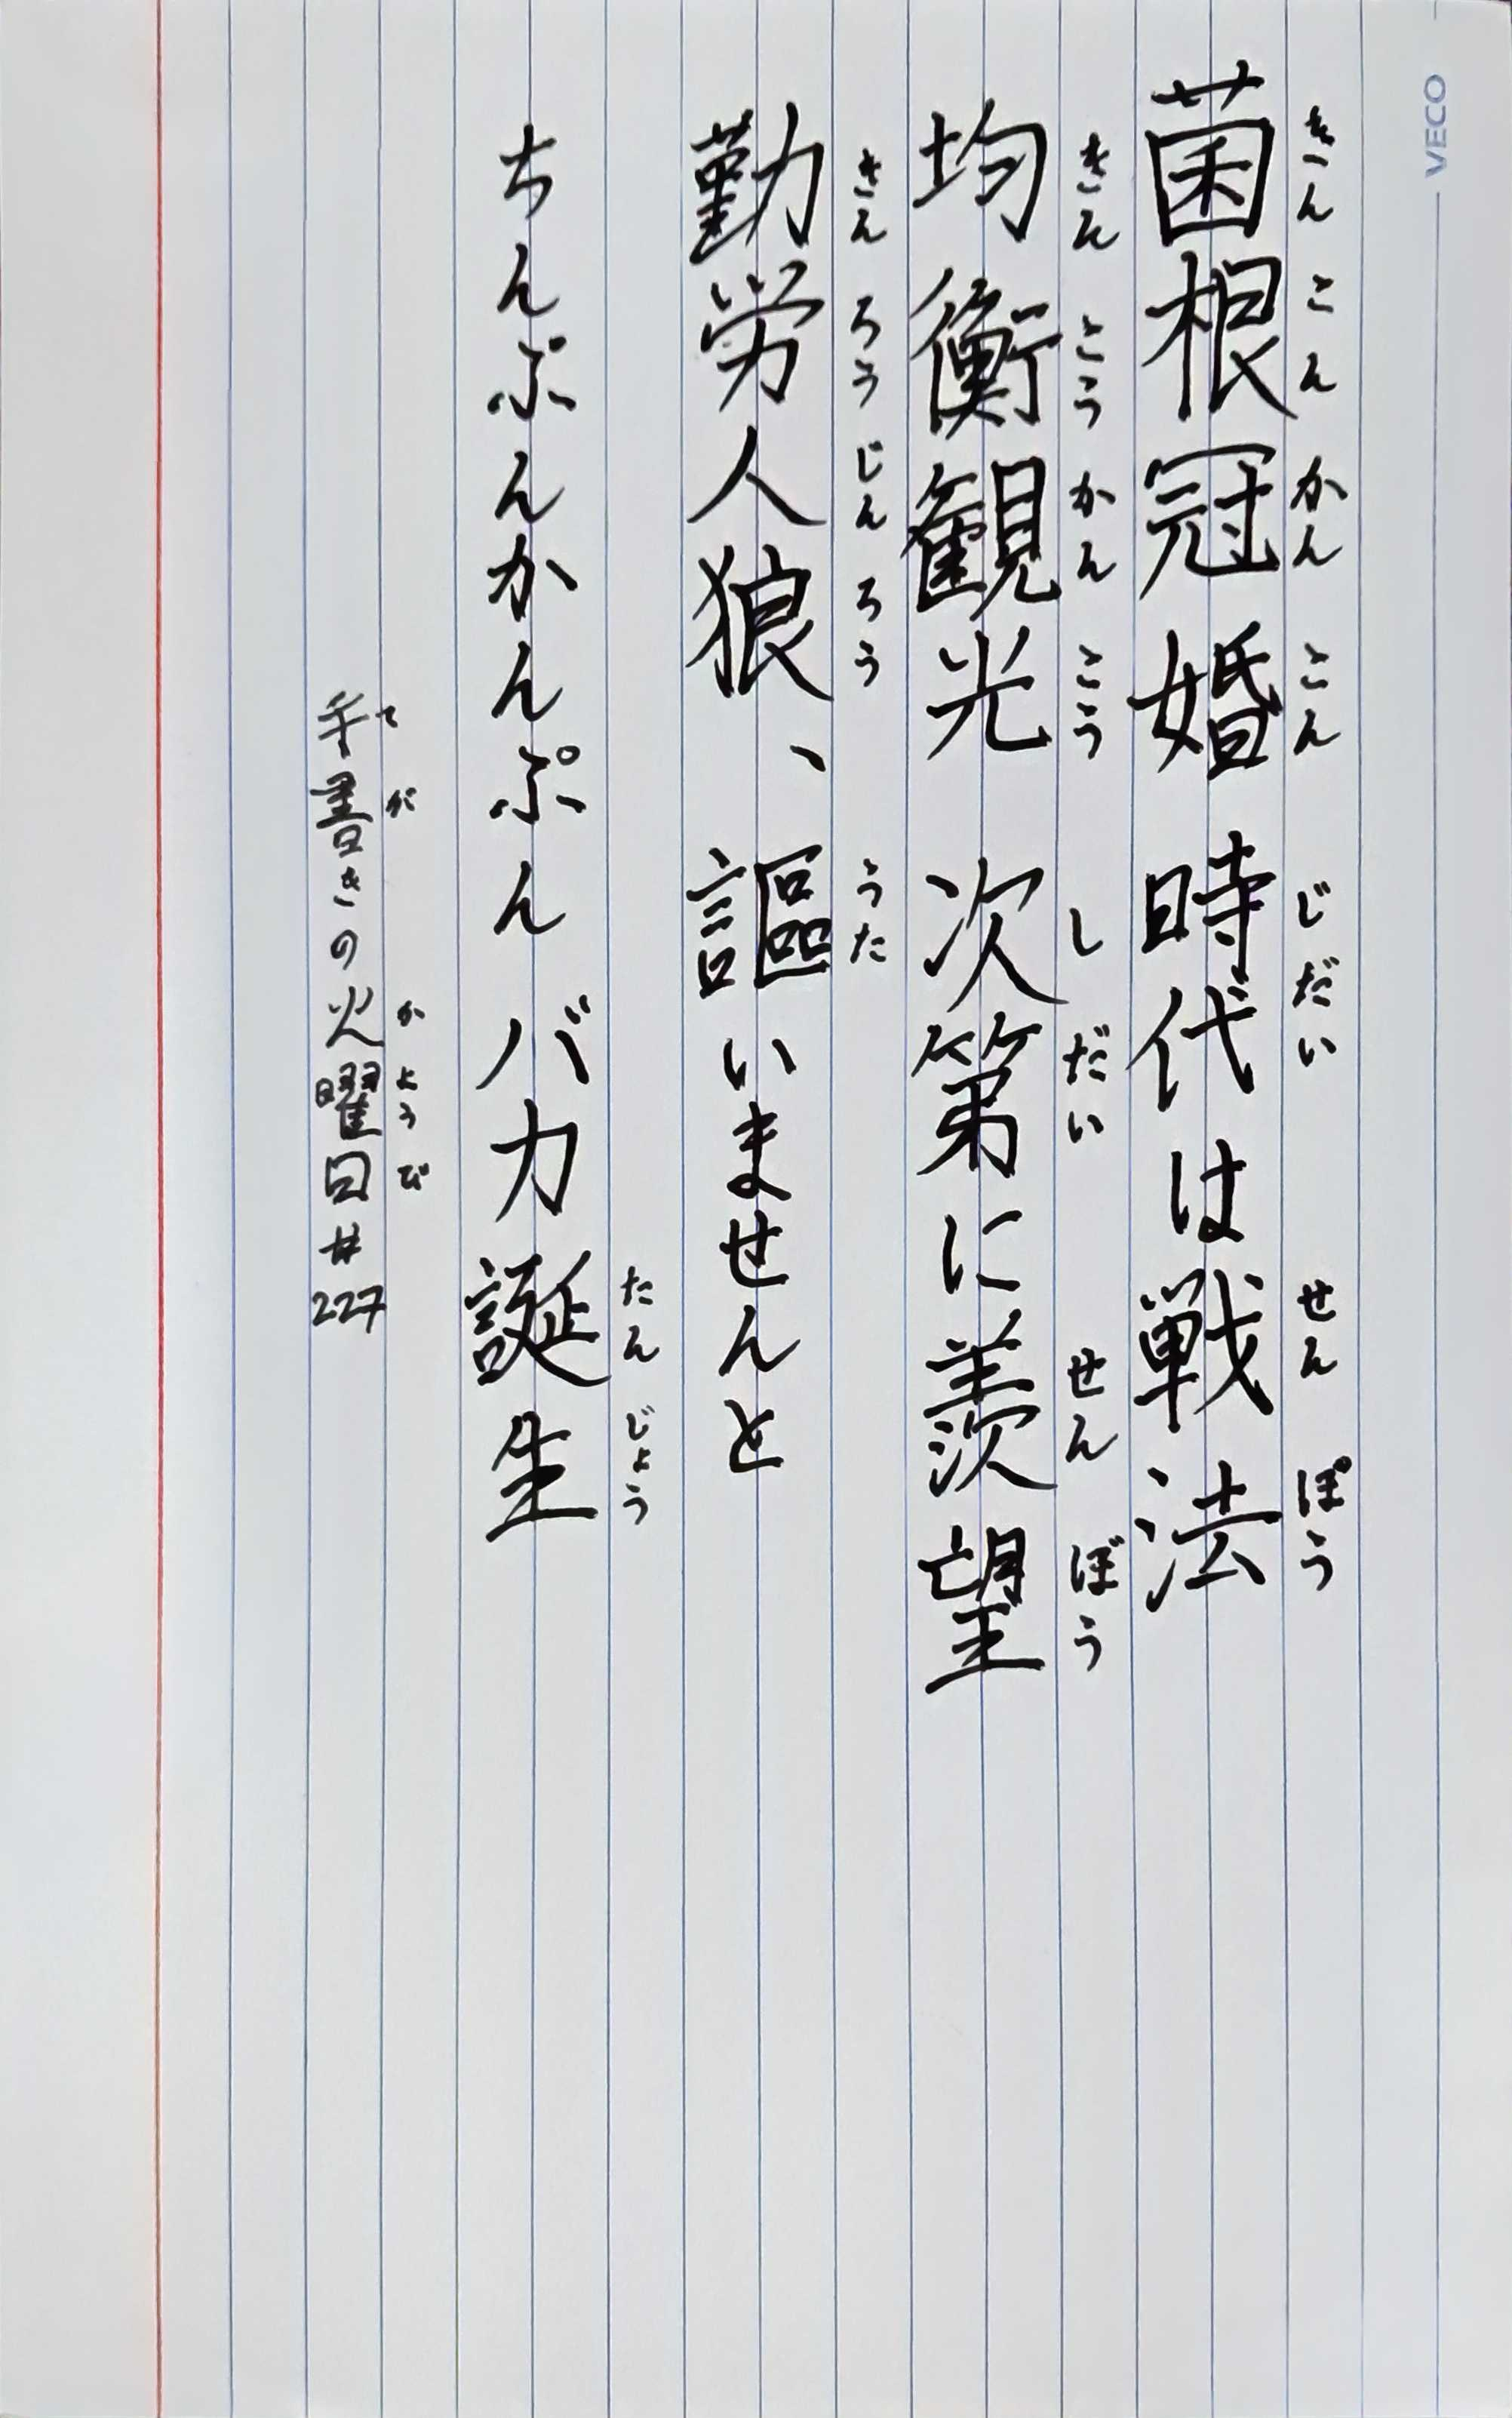 菌根冠婚 時代は戦法
きんこんかんこん じだい せんぽう
均衡観光 次第に羨望
きんこうかんこう しだい せんぼう
勤労人狼、謳いませんと
きんろうじんろう うた
ちんぷんかんぷん バカ誕生
たんじょう
手書きの火曜日#227
てが かようび
VECO